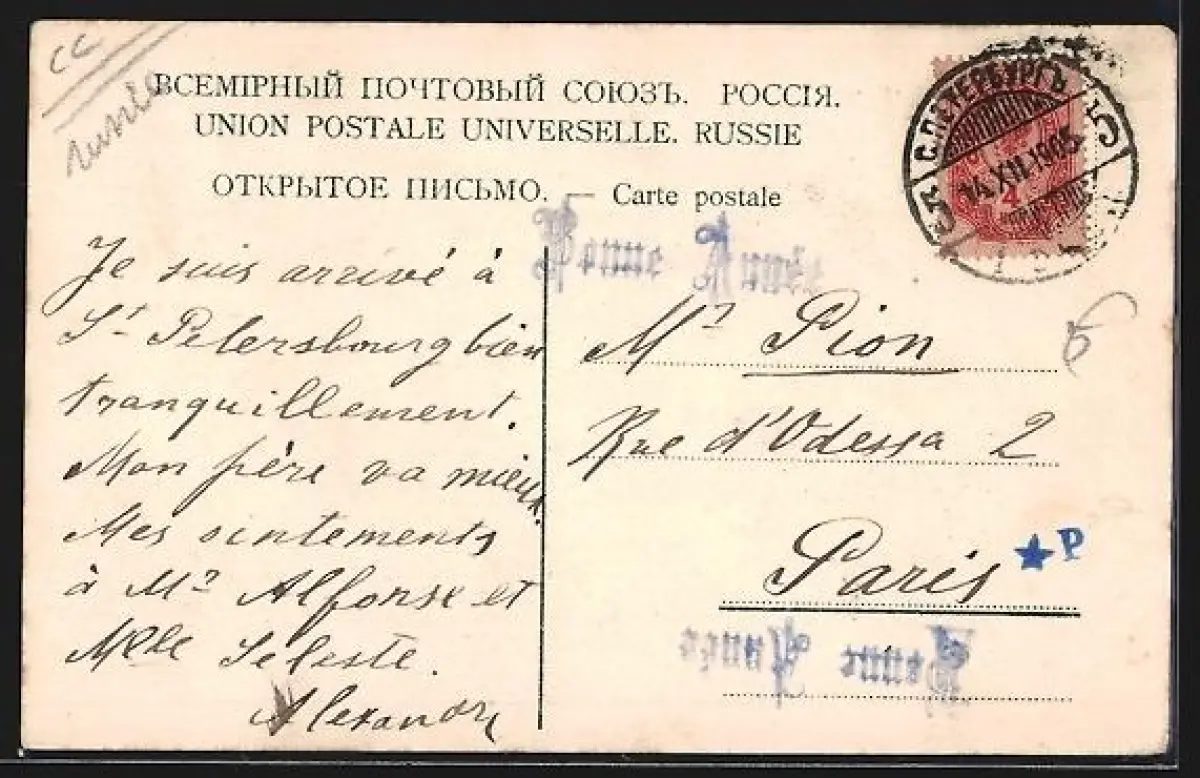 cc
Russie
ВСЕМІРНЫЙ ПОЧТОВЫЙ СОЮЗЪ. РОССІЯ.
UNION POSTALE UNIVERSELLE. RUSSIE
ОТКРЫТОЕ ПИСЬМО. — Carte postale
С.ПЕТЕРБУРГЪ
14.XII.1905
5
4
Bonne Année
Je suis arrivé à
St Petersbourg bien
tranquillement.
Mon père va mieux.
Mes sintements
à Mr Alfonse et
Melle Seleste.
Alexandr
Mr Pion
Rue d'Odessa 2
Paris
★P
Bonne Année
6